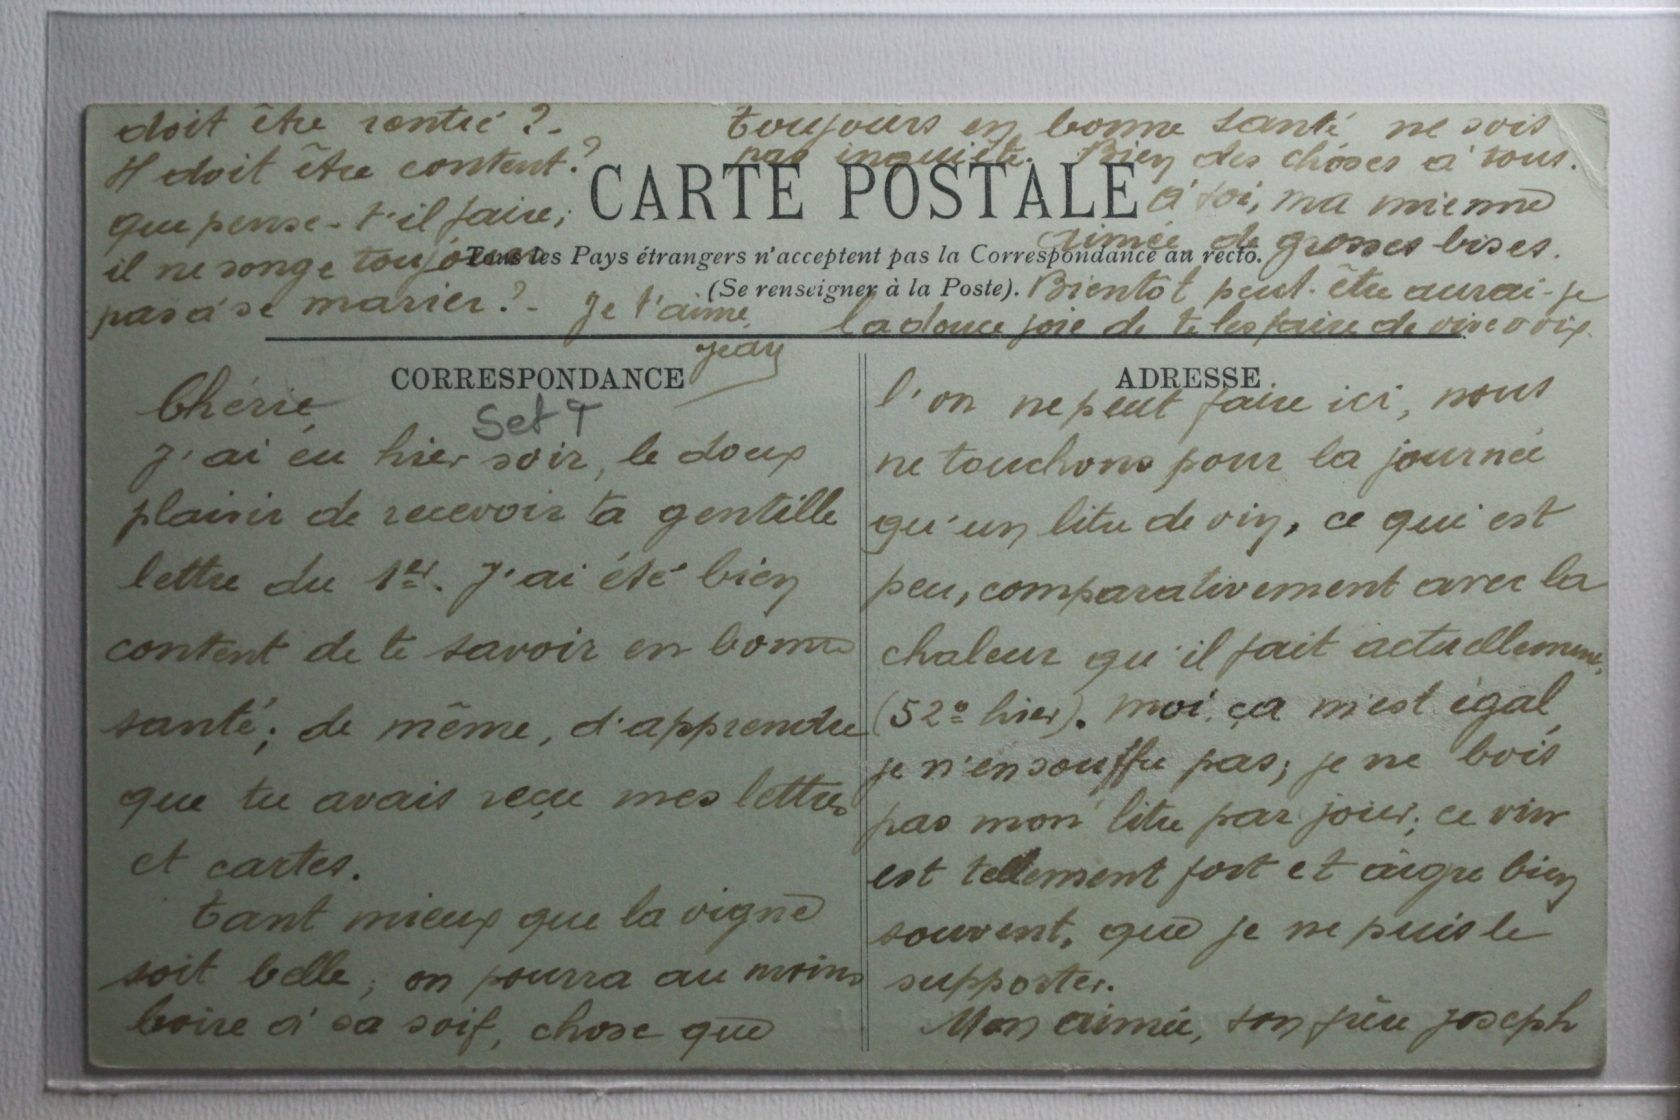 CARTE POSTALE
Tous les Pays étrangers n'acceptent pas la Correspondance au recto.
(Se renseigner à la Poste).
CORRESPONDANCE
ADRESSE
Set T
Chérie
J'ai eu hier soir, le doux
plaisir de recevoir ta gentille
lettre du 1er. J'ai été bien
content de te savoir en bonne
santé; de même, d'apprendre
que tu avais reçu mes lettres
et cartes.
Tant mieux que la vigne
soit belle; on pourra au moins
boire à sa soif, chose que
l'on ne peut faire ici, nous
ne touchons pour la journée
qu'un litre de vin, ce qui est
peu, comparativement avec la
chaleur qu'il fait actuellement,
(52º hier). Moi, ça m'est égal
je n'en souffre pas; je ne bois
pas mon litre par jour; ce vin
est tellement fort et aigre bien
souvent, que je ne puis le
supporter.
Mon aimée, ton frère Joseph
doit être rentré ?-
Il doit être content ?
que pense-t'il faire;
il ne songe toujours
pas à se marier ?-
Toujours en bonne santé ne sois
pas inquiète. Bien des choses à tous.
à toi, ma mienne
aimée de grosses bises.
Bientôt peut-être aurai-je
la douce joie de te les faire de vive voix.
Je t'aime
Jean